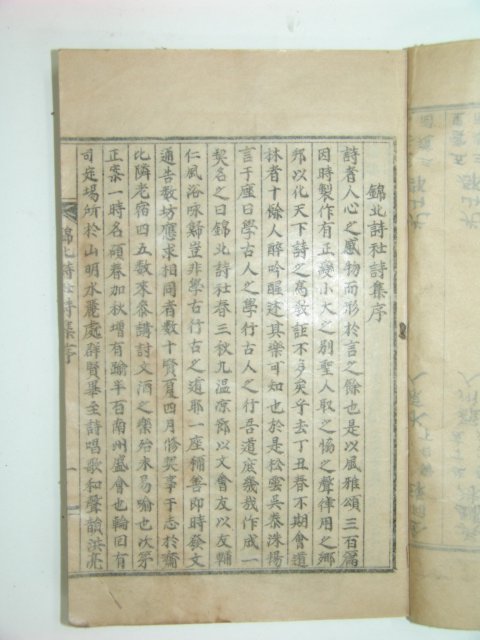 錦北詩社詩集序
詩者人心之感物而形於言之餘也是以風雅頌三百篇
因時製作有正變小大之別聖人取之協之聲律用之鄉
邦以化天下詩之爲敎詎不多矣乎去丁丑春不期會道
林者十餘人醉吟醒述其樂可知也於是松雲吳泰洙揚
言于座曰學古人之學行古人之行吾道庶幾哉作成一
契名之曰錦北詩社春三秋九溫凉節以文會友以友輔
仁風浴咏歸豈非學古行古之道耶一座稱善卽時發文
通告数坊應求相同者数十賢夏四月修契事于志於齋
北隣老宿四五数來參講討文酒之樂殆未易喩也次第
正案一時名碩春加秋增有踰半百南州盛會也輪回有
司庭場所於山明水麗處群賢畢至詩唱歌和聲韻洪亮
錦北詩社詩集序
一